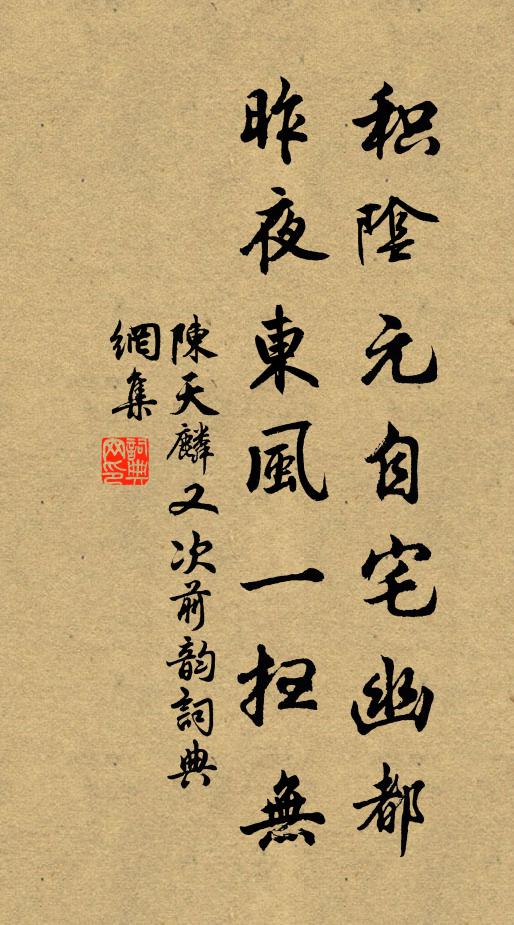 积陰元自宅幽都
昨夜東風一扫無
陳天麟又次前韵詞典
網集
詞典網印